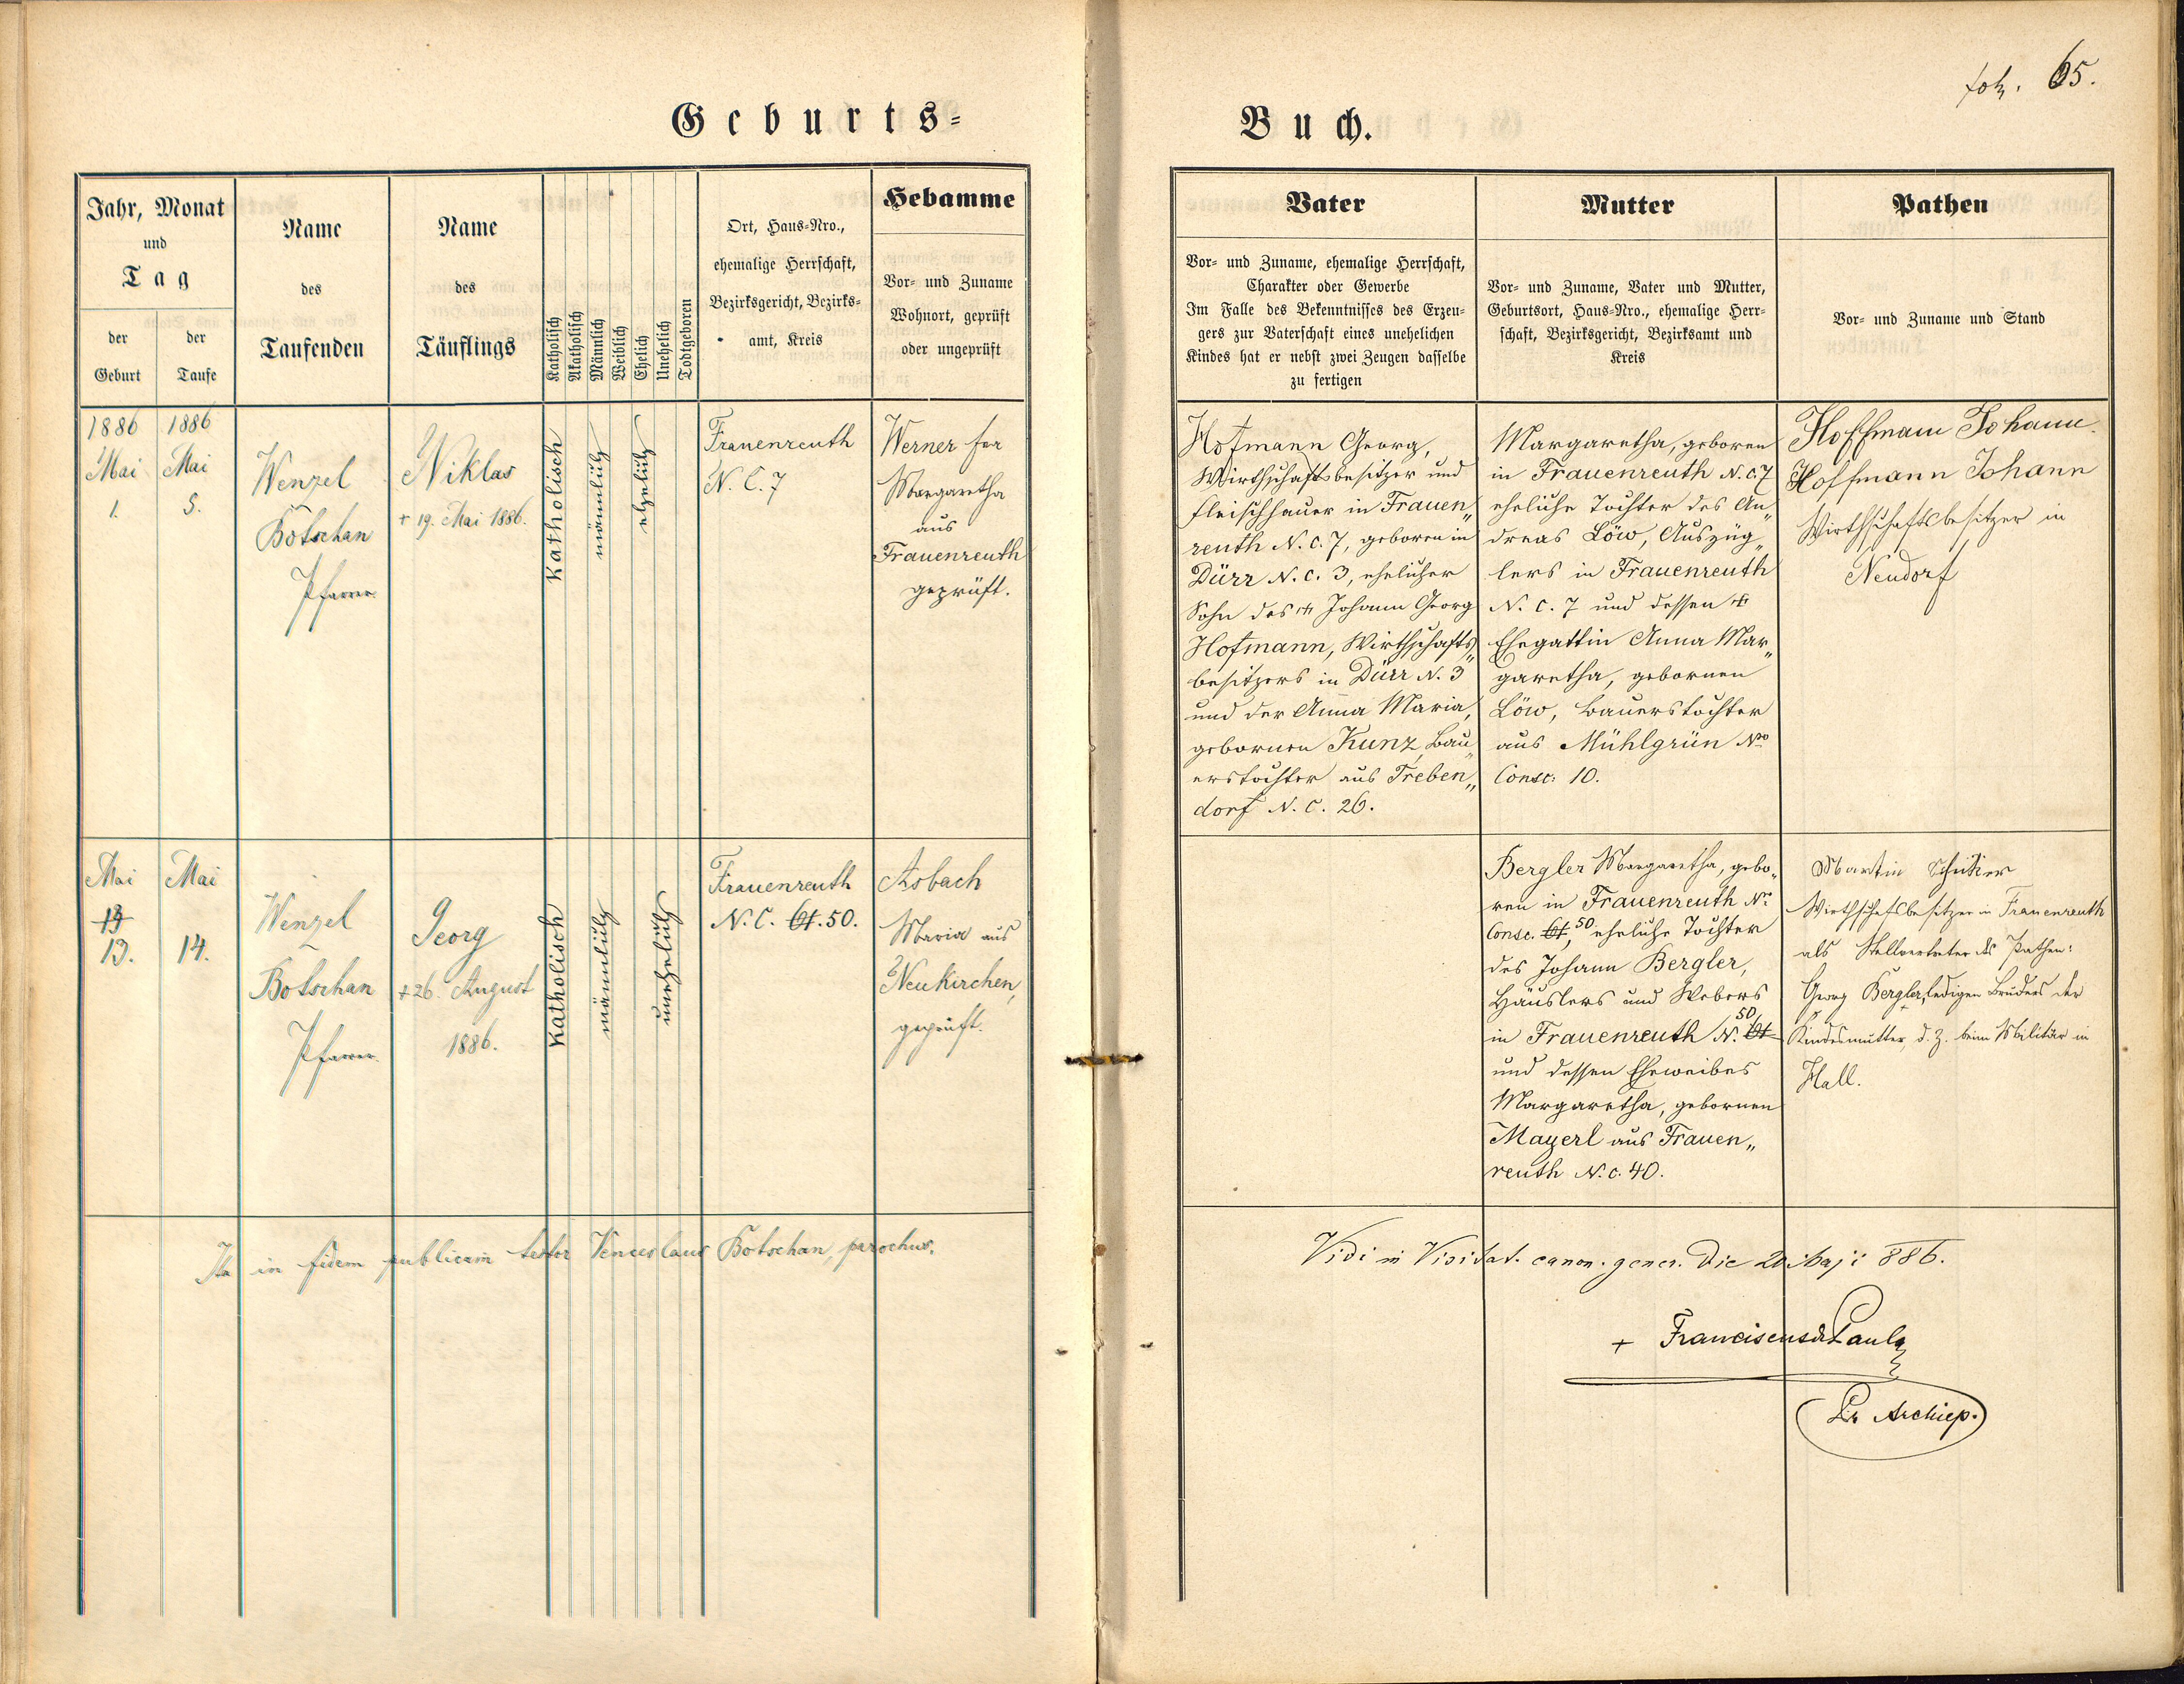 foh. 65.
Geburts=
Buch.
Jahr, Monat
und
Tag
der
Geburt
der
Taufe
Name
des
Taufenden
Name
des
Täuflings
Katholisch
Akatholisch
Männlich
Weiblich
Ehelich
Unehelich
Todtgeboren
Ort, Haus-Nro.,
ehemalige Herrschaft,
Bezirksgericht, Bezirks-
amt, Kreis
Hebamme
Vor- und Zuname
Wohnort, geprüft
oder ungeprüft
Vater
Vor- und Zuname, ehemalige Herrschaft,
Charakter oder Gewerbe
Im Falle des Bekenntnisses des Erzeu-
gers zur Vaterschaft eines unehelichen
Kindes hat er nebst zwei Zeugen dasselbe
zu fertigen
Mutter
Vor- und Zuname, Vater und Mutter,
Geburtsort, Haus-Nro., ehemalige Herr-
schaft, Bezirksgericht, Bezirksamt und
Kreis
Pathen
Vor- und Zuname und Stand
1886
Mai
1.
1886
Mai
5.
Wenzel
Botschan
Pfarrer
Niklas
+ 19. Mai 1886.
Katholisch
männlich
ehelich
Frauenreuth
N. C. 7
Werner
Margaretha
aus
Frauenreuth
geprüft.
Hofmann Georg,
Wirthschaftsbesitzer und
Fleischhauer in Frauen„
reuth N. C. 7, geboren in
Dürr N. C. 3, ehelicher
Sohn des + Johann Georg
Hofmann, Wirthschafts„
besitzers in Dürr N. 3
und der Anna Maria,
gebornen Kunz, Bau„
erstochter aus Treben„
dorf N. C. 26.
Margaretha, geboren
in Frauenreuth N. C. 7
eheliche Tochter des An„
dreas Löw, Auszüg„
lers in Frauenreuth
N. C. 7 und dessen +
Ehegattin Anna Mar„
garetha, gebornen
Löw, Bauerstochter
aus Mühlgrün Nro
Consc. 10.
Hoffmann Johann
Hoffmann Johann
Wirthschaftsbesitzer in
Neudorf
Mai
13
13.
Mai
14.
Wenzel
Botschan
Pfarrer
Georg
+ 26. August
1886.
Katholisch
männlich
unehelich
Frauenreuth
N. C. 61. 50.
Asbach
Maria aus
Neukirchen,
geprüft.
Bergler Margaretha, gebo„
ren in Frauenreuth No
Consc. 61, 50 eheliche Tochter
des Johann Bergler,
Häuslers und Webers
in Frauenreuth N. 61 50
und dessen Eheweibes
Margaretha, gebornen
Mayerl aus Frauen„
reuth N. C. 40.
Martin
Wirthschaftsbesitzer in Frauenreuth
als Stellvertreter des Pathen:
Georg Bergler, ledigen Bruders der
Kindesmutter, d. Z. beim Militär in
Hall.
Ita in fidem publicam testor Venceslaus Botschan, parochus.
Vidi in Visitat. canon. gener. die 20 Maji 886.
+ Franciscus de Paula
Pr Archiep.